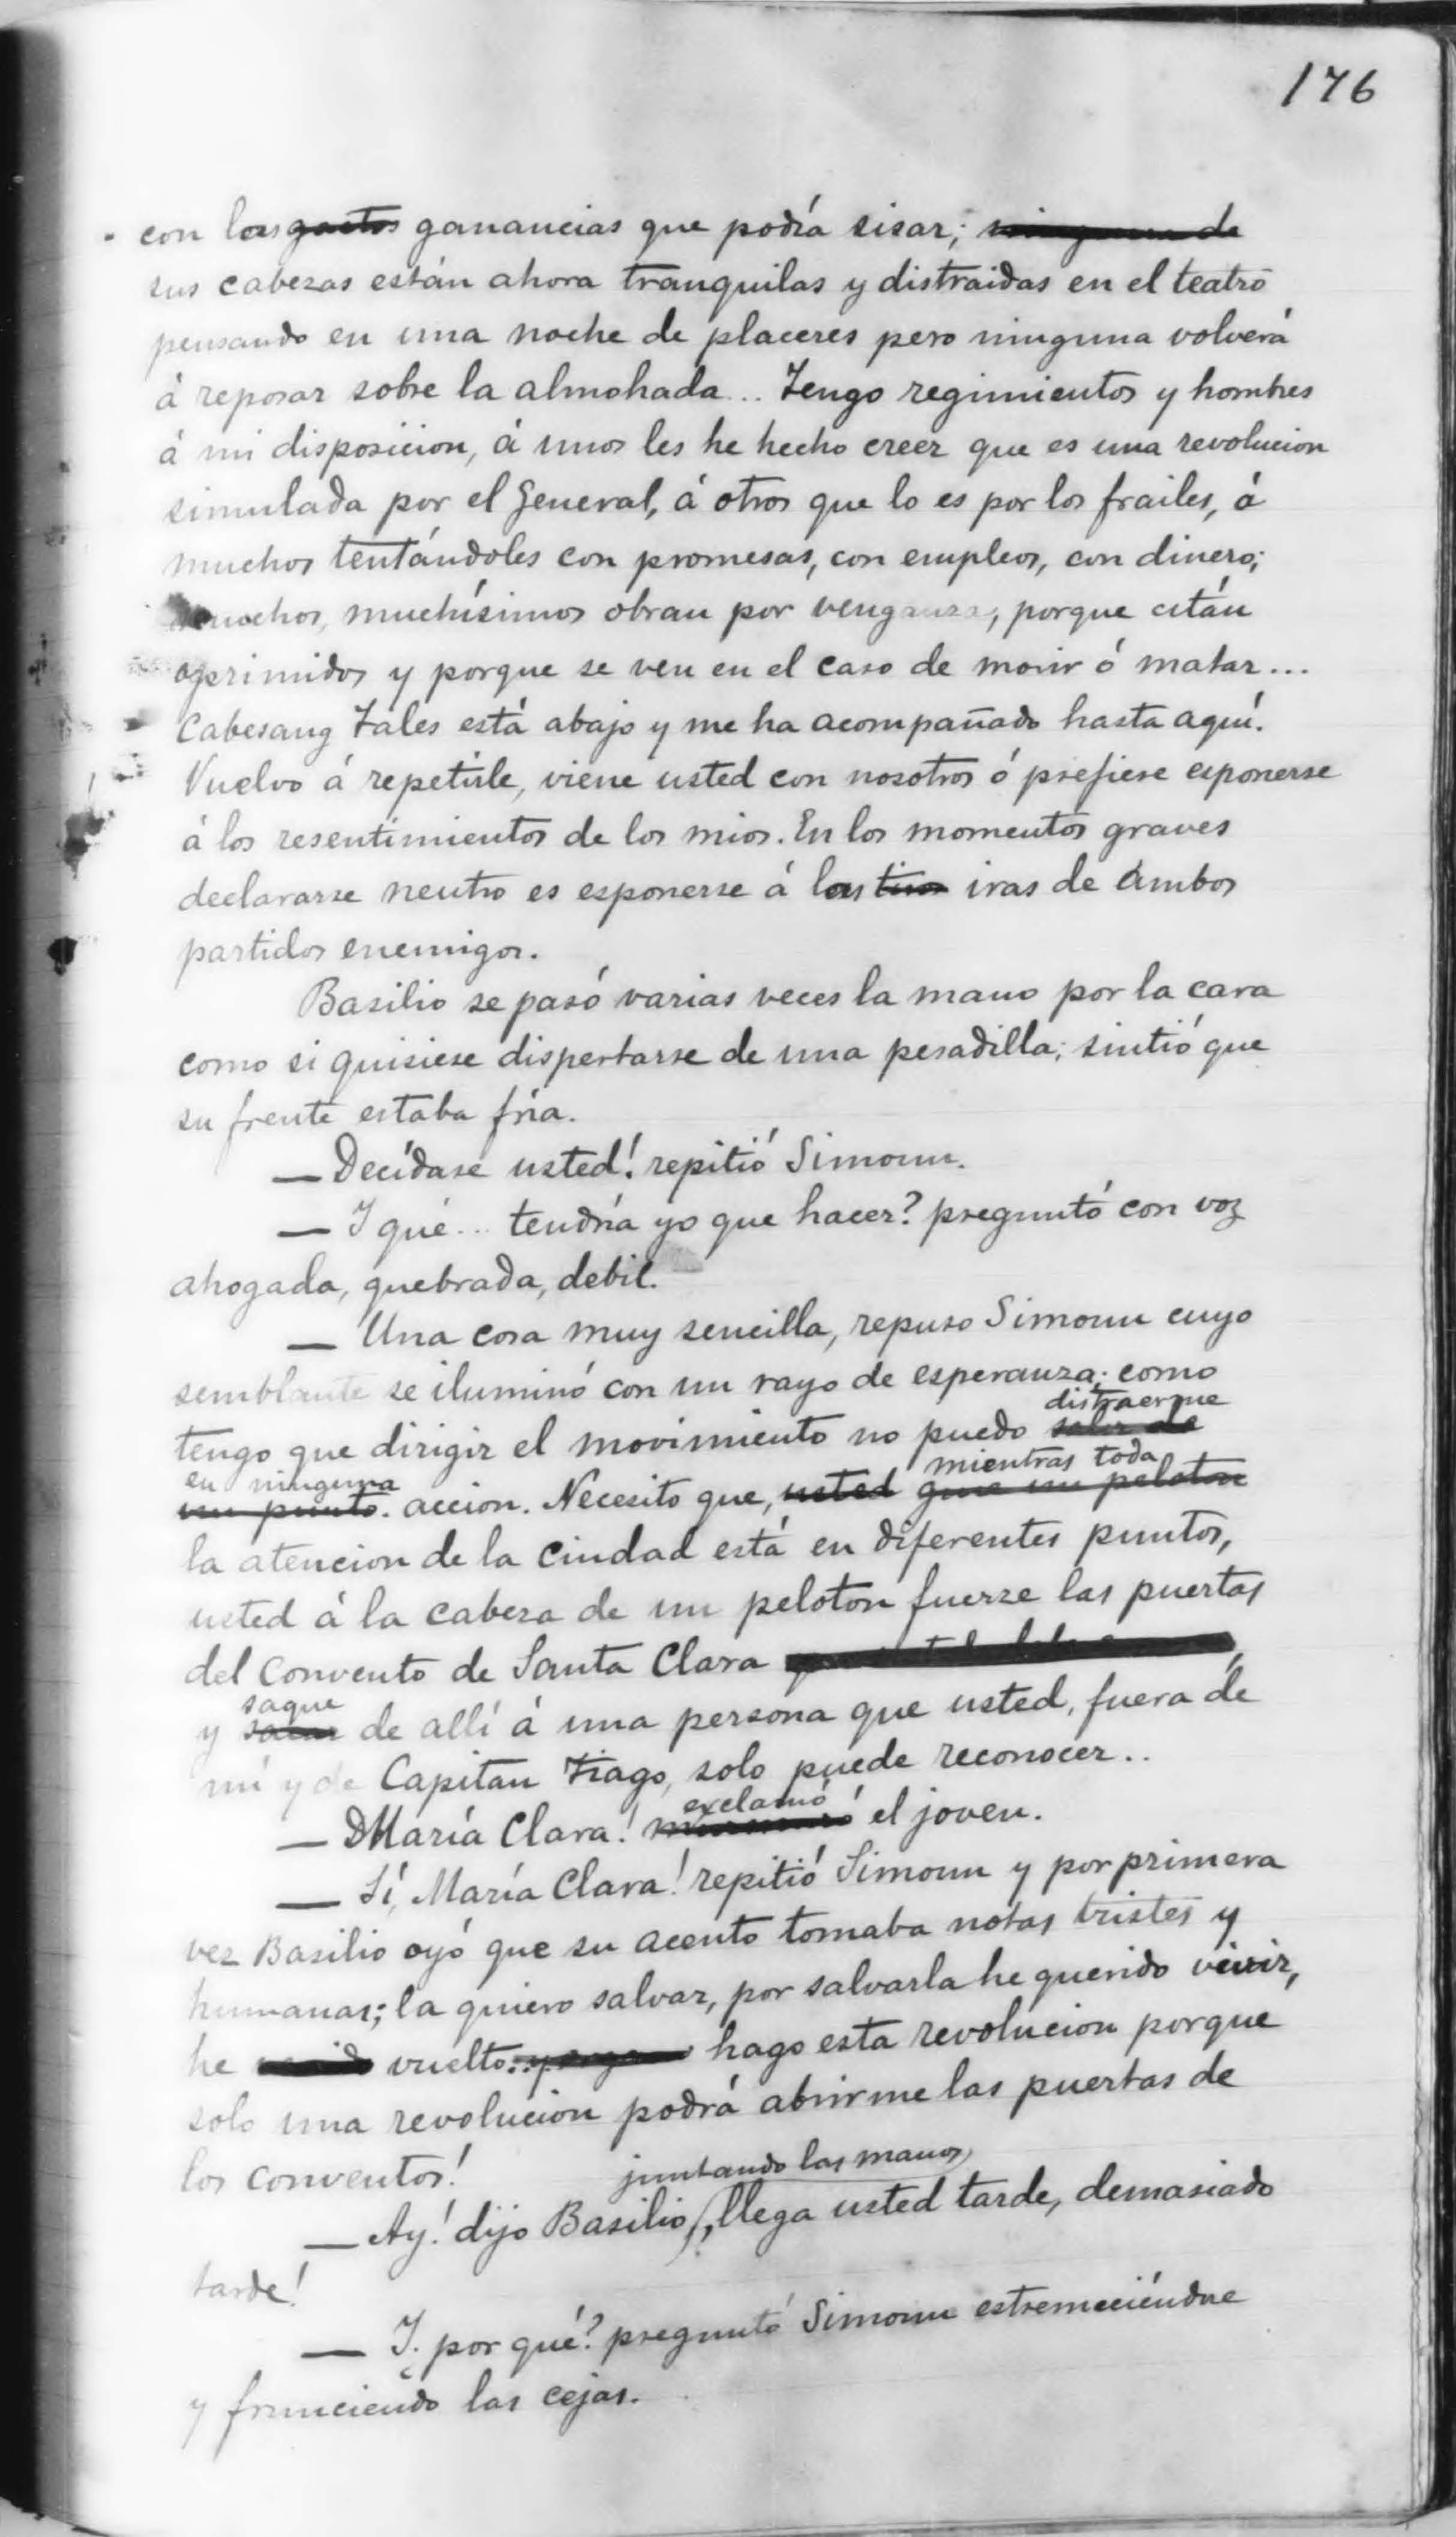 176
con las gastos ganancias que podía sisar; ninguna de
sus cabezas están ahora tranquilas y distraidas en el teatro
pensando en una noche de placeres pero ninguna volverá
á reposar sobre la almohada... Tengo regimientos y hombres
á mi disposicion, á unos les he hecho creer que es una revolucion
simulada por el General, á otros que lo es por los frailes, á
muchos tentándoles con promesas, con empleos, con dinero;
muchos, muchísimos obran por venganza, porque están
oprimidos y porque se ven en el caso de morir ó matar...
Cabesang Tales está abajo y me ha acompañado hasta aquí.
Vuelvo á repetirle, viene usted con nosotros ó prefiere esponerse
á los resentimientos de los mios. En los momentos graves
declararse neutro es esponerse á las iras de ambos
partidos enemigos.
Basilio se pasó varias veces la mano por la cara
como si quisiese dispertarse de una pesadilla; sintió que
su frente estaba fría.
— Decídase usted! repitió Simoun.
— I qué... tendría yo que hacer? preguntó con voz
ahogada, quebrada, debil.
— Una cosa muy sencilla, repuso Simoun cuyo
semblante se iluminó con un rayo de esperanza; como
distraerme
tengo que dirigir el movimiento no puedo salir de
en ninguna mientras toda
un punto. accion. Necesito que, usted que un peloton
la atencion de la ciudad está en diferentes puntos,
usted á la cabeza de un peloton fuerze las puertas
del convento de Santa Clara
saque
y sacar de allí á una persona que usted, fuera de
mí y de Capitan Tiago, solo puede reconocer..
exclamó
— María Clara! murmuró el joven.
— Sí, María Clara! repitió Simoun y por primera
vez Basilio oyó que su acento tomaba notas tristes y
humanas; la quiero salvar, por salvarla he querido vivir,
he vuelto.. hago esta revolucion porque
solo una revolucion podrá abrirme las puertas de
los conventos!
juntando las manos,
— Ay! dijo Basilio, llega usted tarde, demasiado
tarde!
— I. por qué? preguntó Simoun estremeciéndose
y frunciendo las cejas.